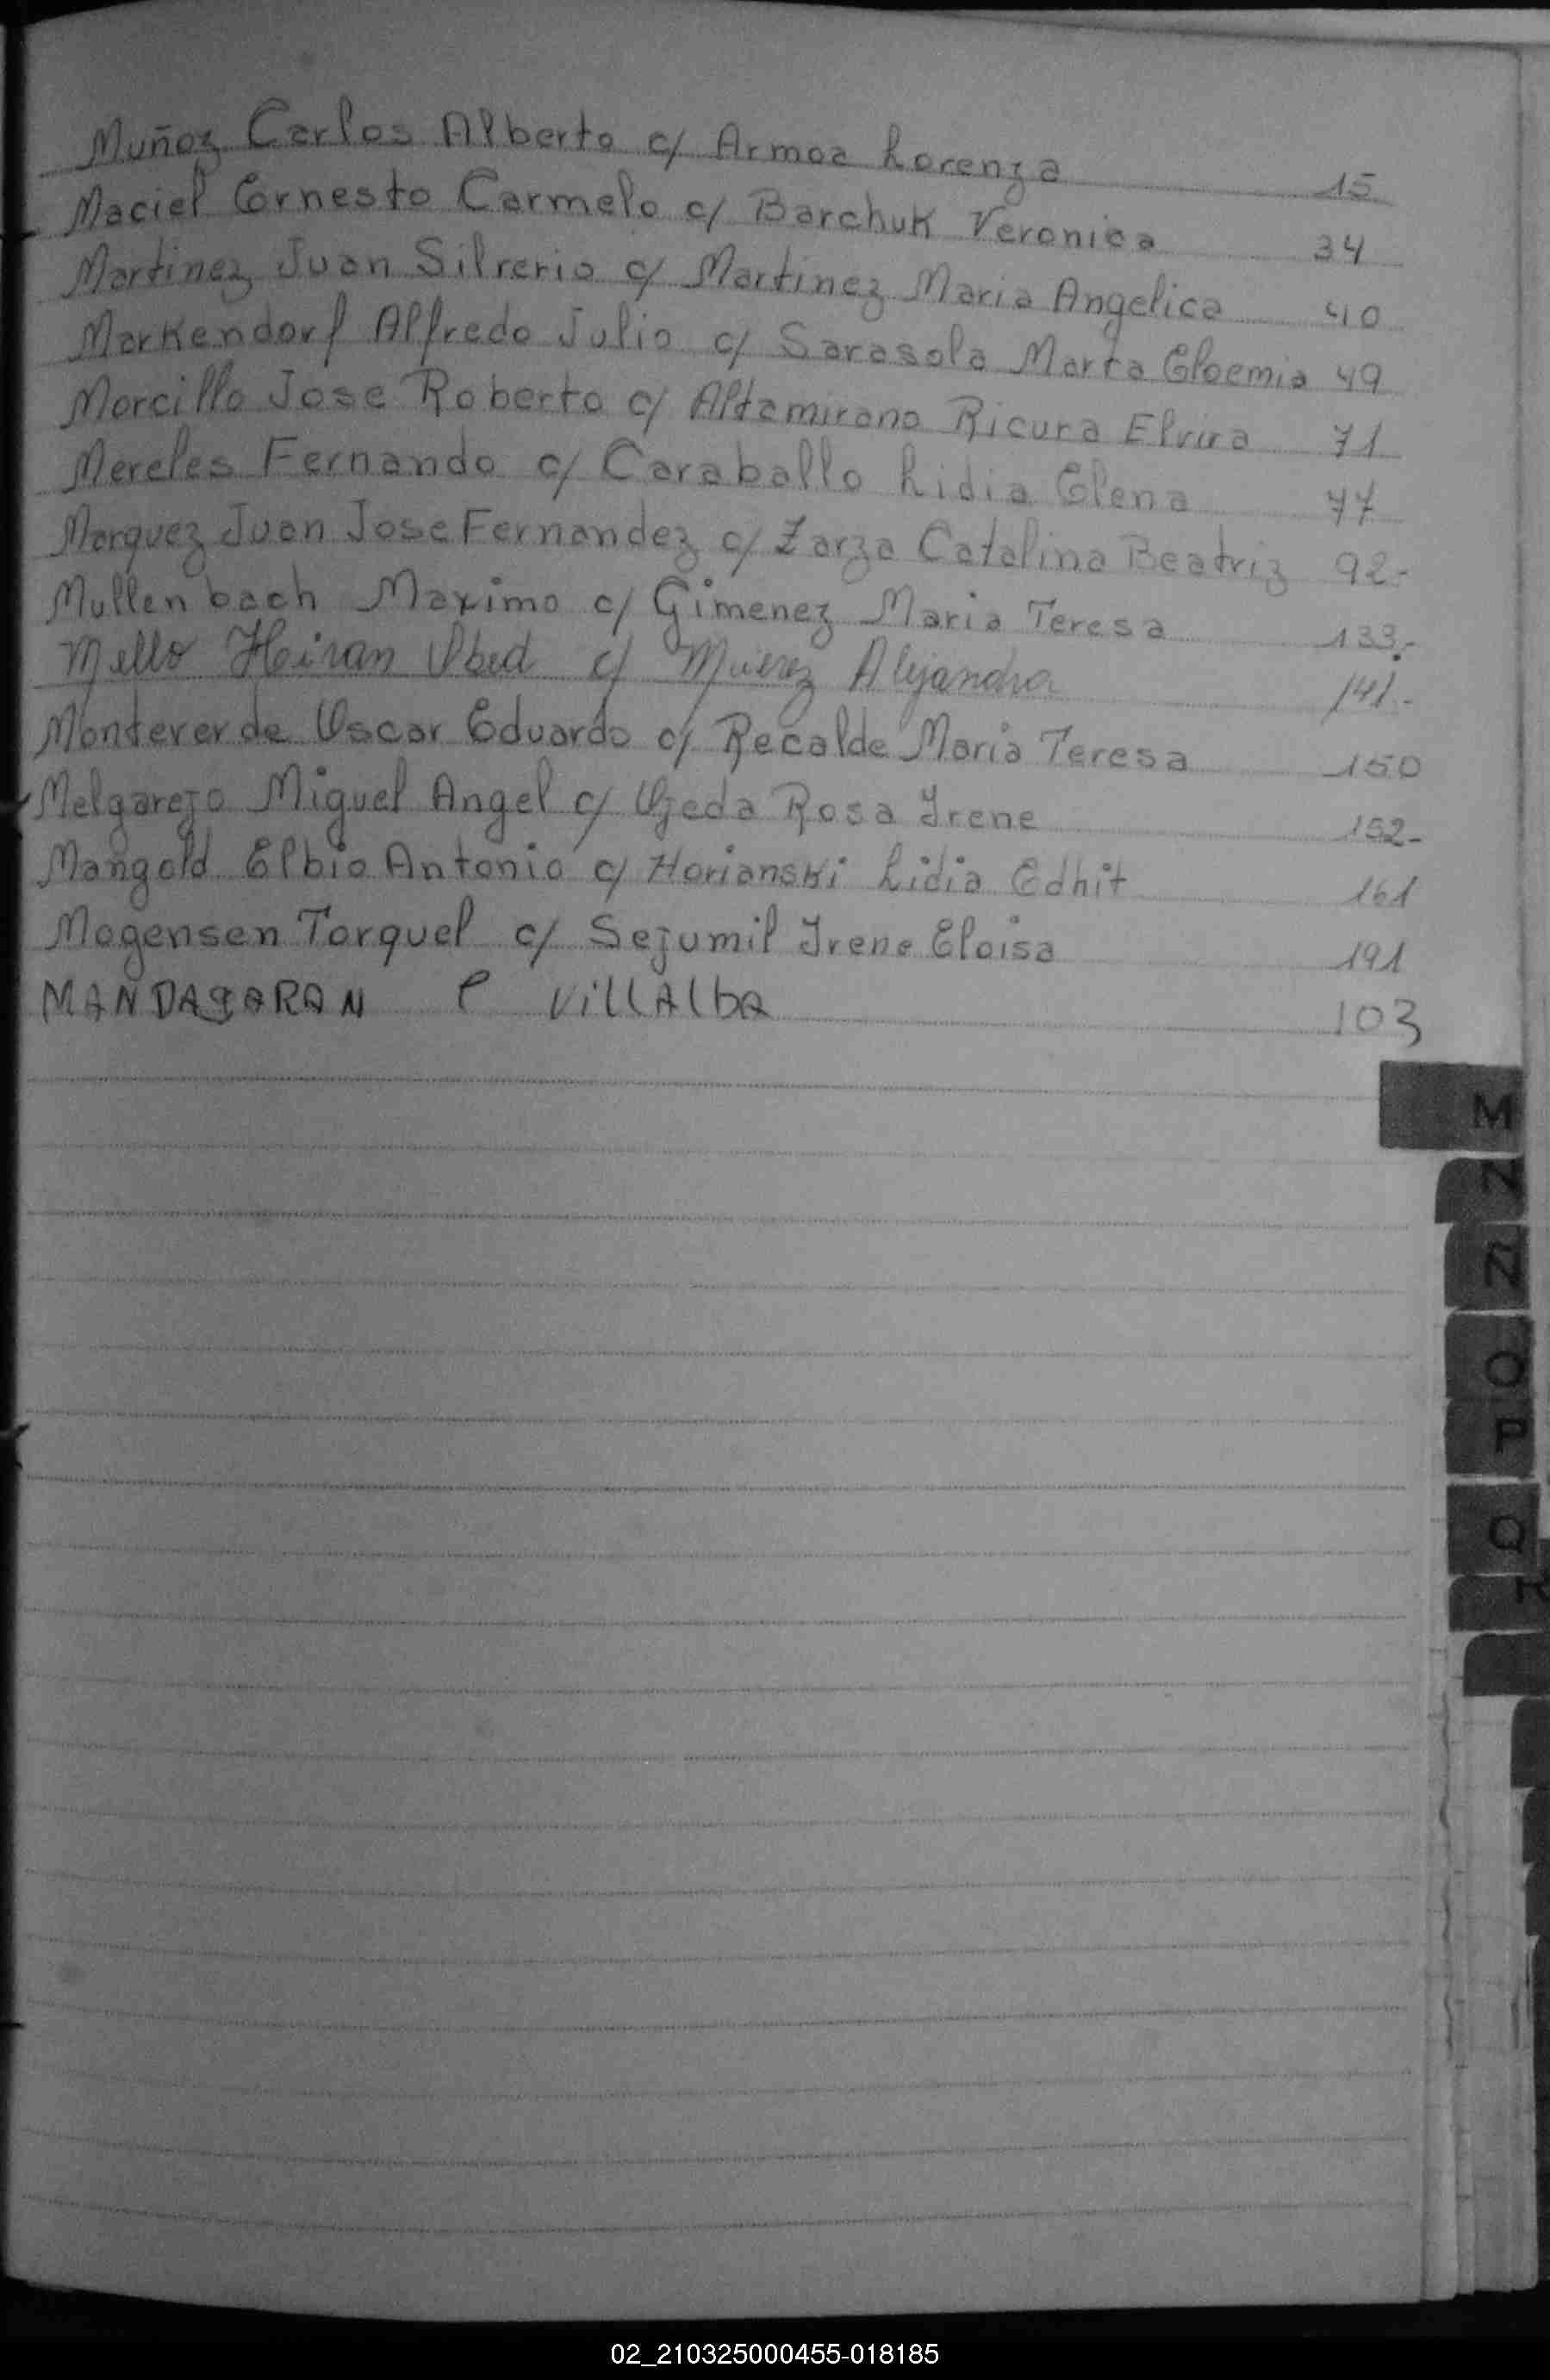 Muñoz Carlos Alberto c/ Armoa Lorenza 15
Maciel Ernesto Carmelo c/ Barchuk Veronica 34
Martinez Juan Silverio c/ Martinez Maria Angelica 40
Markendorf Alfredo Julio c/ Sarasola Marta Eloemia 49
Morcillo Jose Roberto c/ Altamirano Ricura Elvira 71
Mereles Fernando c/ Caraballo Lidia Elena 77
Marquez Juan Jose Fernandez c/ Zarza Catalina Beatriz 92-
Mullenbach Maximo c/ Gimenez Maria Teresa 133.-
Mello Heiran Obed c/ Alejandra 141-
Monteverde Oscar Eduardo c/ Recalde Maria Teresa 150
Melgarejo Miguel Angel c/ Ojeda Rosa Irene 152-
Mangold Elbio Antonio c/ Horianski Lidia Edhit 161
Mogensen Torquel c/ Sejumil Irene Eloisa 191
MANDAGARAN C VillAlbA 103
M
N
Ñ
O
P
Q
R
02_210325000455-018185